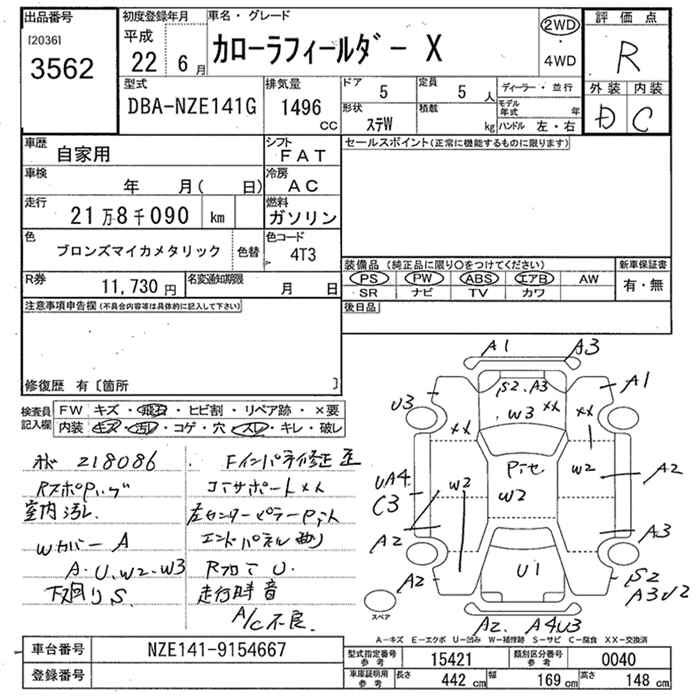 出品番号
[2036]
3562
初度登録年月
平成
22 6月
車名・グレード
カローラフィールダー X
2WD
・
4WD
評価点
R
外装 内装
D C
型式
DBA-NZE141G
排気量
1496
cc
ドア
5
定員
5 人
ディーラー・並行
形状
ステW
積載
kg
モデル年式 年
ハンドル 左・右
車歴
自家用
シフト
FAT
セールスポイント(正常に機能するものに限ります)
車検
年 月( 日)
冷房
AC
走行
21万8千090 km
燃料
ガソリン
色
ブロンズマイカメタリック
色替
色コード
4T3
装備品 (純正品に限り○をつけてください)
PS PW ABS エアB AW
SR ナビ TV カワ
新車保証書
有・無
R券
11,730 円
名変通知期限
月 日
後日品
注意事項申告欄(不具合内容等は具体的に記入して下さい)
修復歴 有〔箇所 〕
検査員
記入欄
FW キズ・飛石・ヒビ割・リペア跡・×要
内装 キズ・汚レ・コゲ・穴・スレ・キレ・破レ
218086
室内汚レ
Wカバー A
A・U、W2・W3
下廻りS、
Fインパネ修正 歪
コアサポートメん
左センターピラーPいト
エンドパネル曲り
走行時音
A/C不良、
A1 A3
S2、A3 A1
U3 W3 XX XX
XX
W2 W2
UA4
C3
W2
A2
A2 A3
A2 U1 S2
A3U2
スペア
A2 A4U3
A−キズ E−エクボ U−凹み W−補修跡 S−サビ C−腐食 XX−交換済
車台番号
NZE141-9154667
登録番号
型式指定番号
参考
15421
類別区分番号
参考
0040
車庫証明用
参考
長さ 442 cm
幅 169 cm
高さ 148 cm